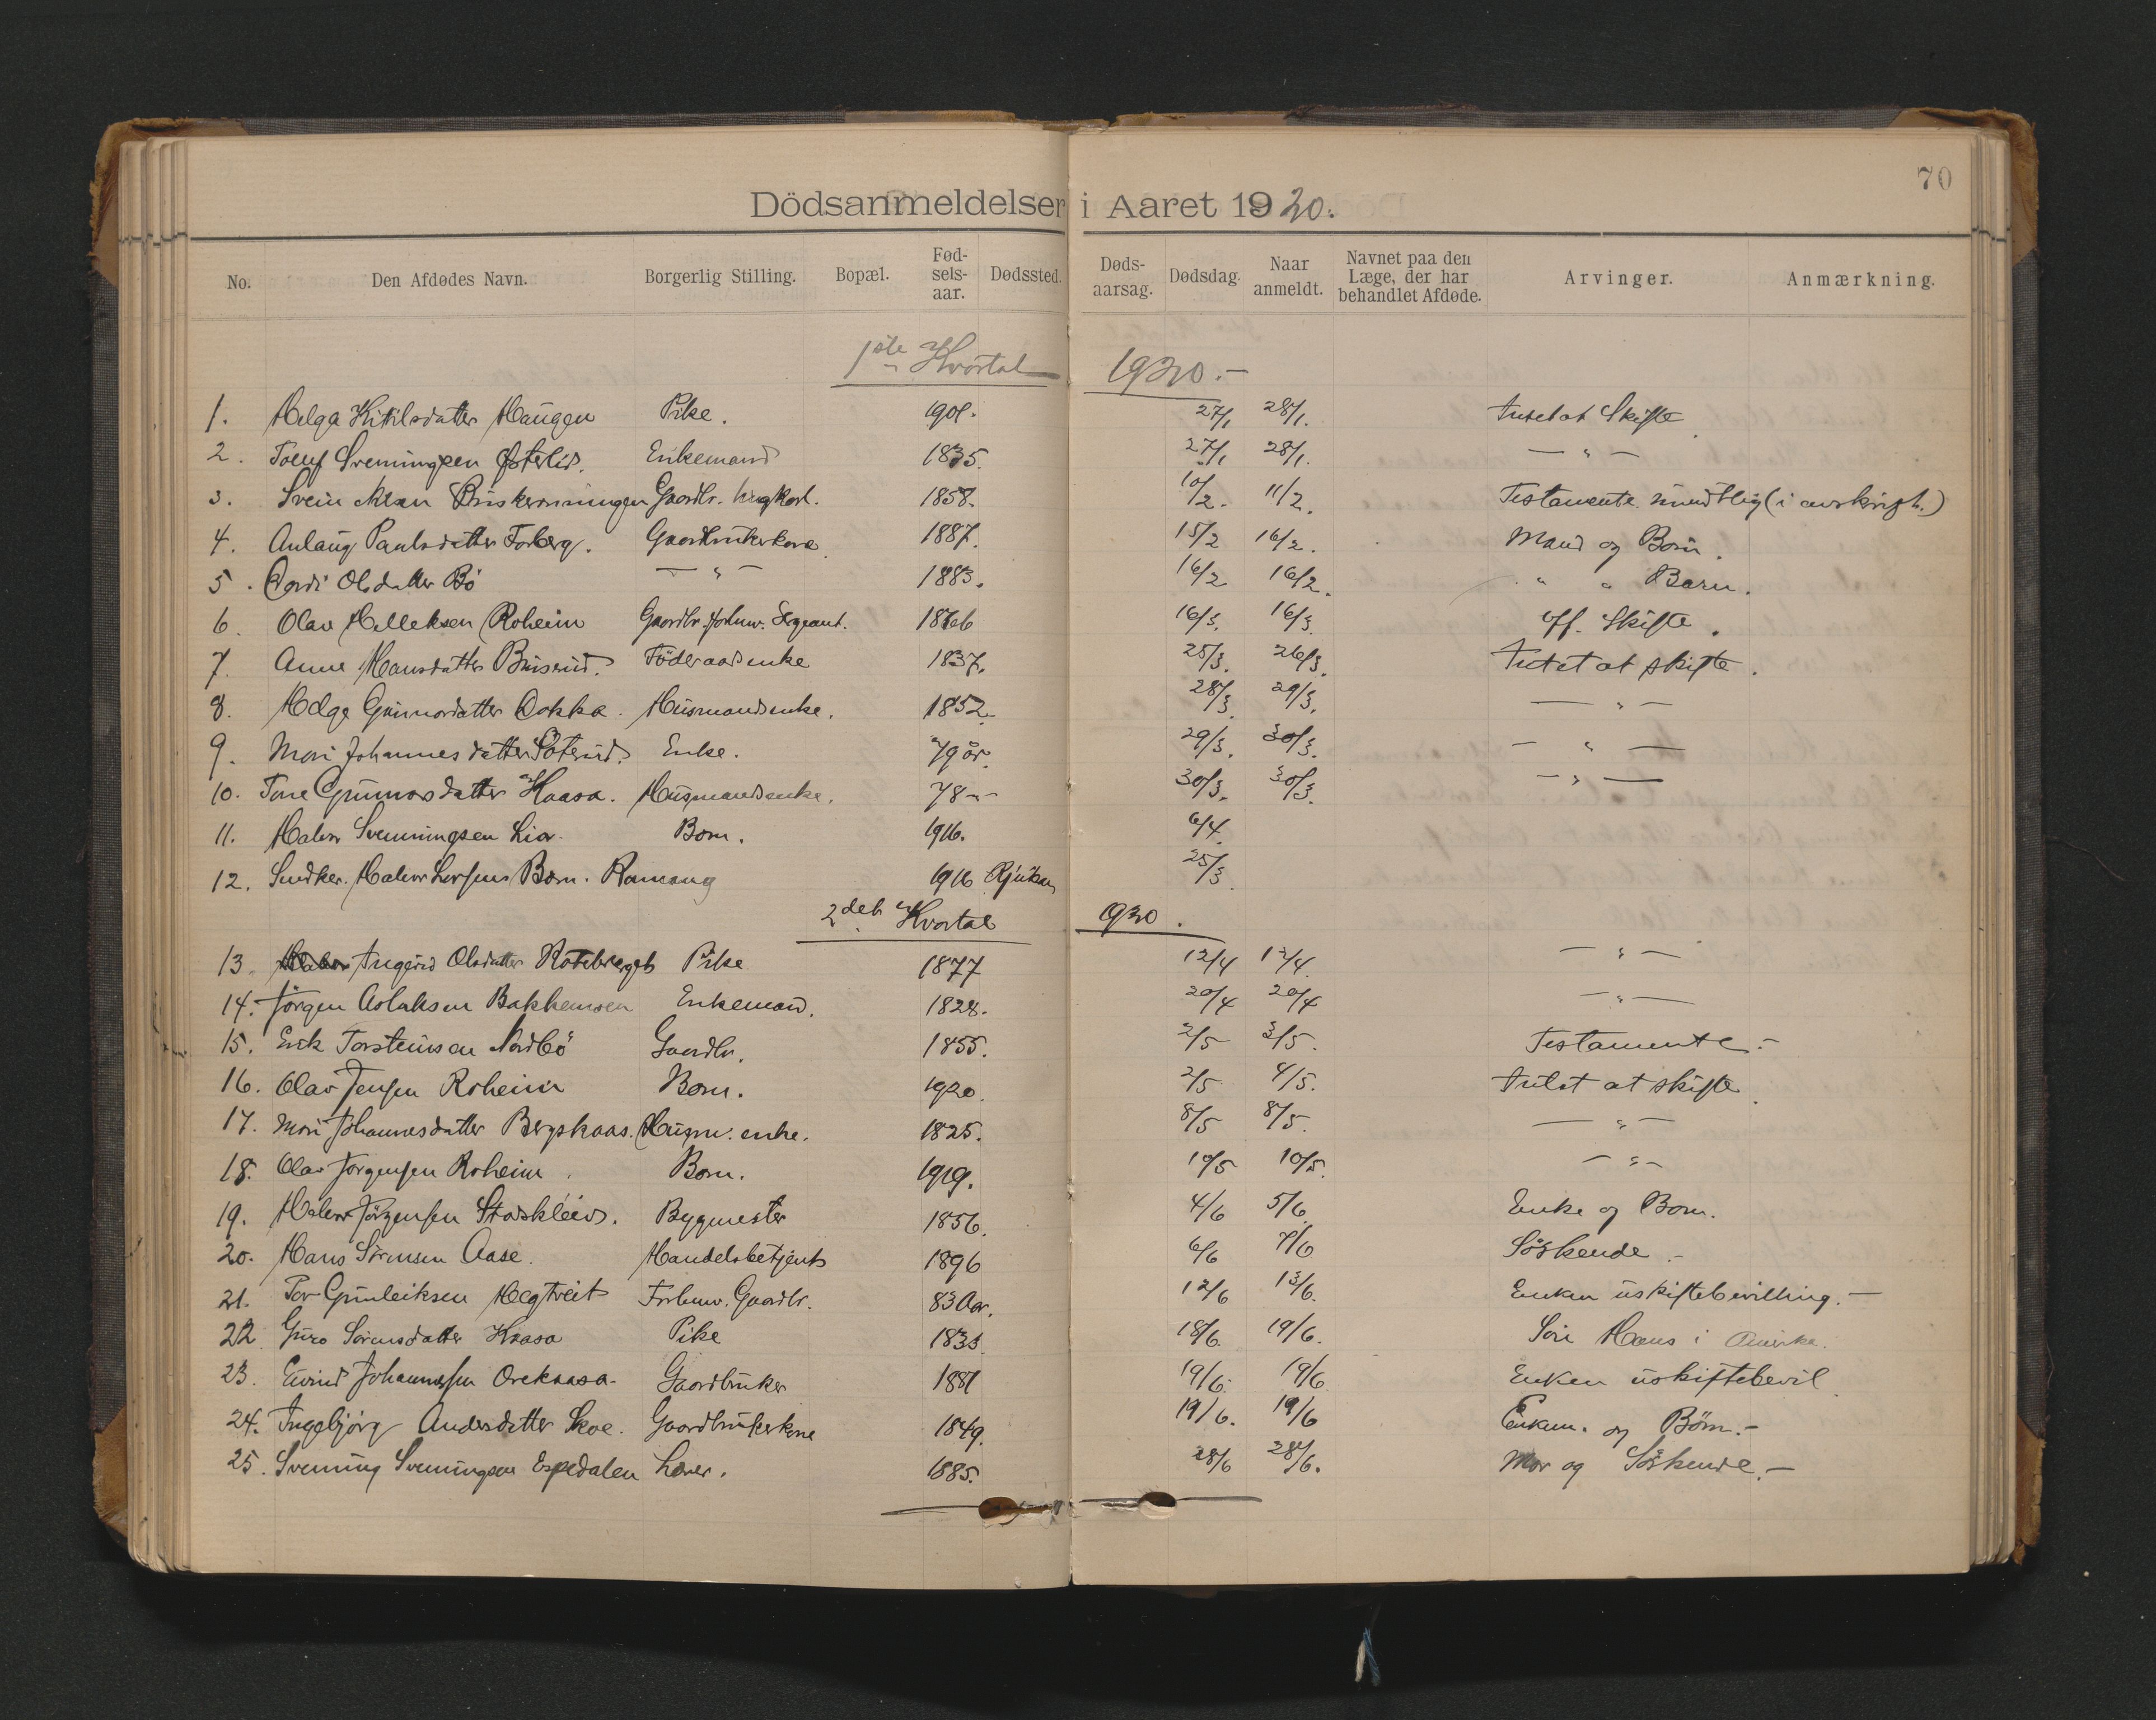 70
Dödsanmeldelser i Aaret 1920.
No. Den Afdødes Navn. Borgerlig Stilling. Bopæl. Fød-sels-aar. Dødssted. Døds-aarsag. Dødsdag. Naar anmeldt. Navnet paa den Læge, der har behandlet Afdøde. Arvinger. Anmærkning.
1ste Kvartal 1920.-
1. Helga Kittilsdatter Haugen Pike. 1901. 27/1 28/1. Intet at Skifte
2. Tollef Svenningsen Østerlid. Enkemand 1835. 27/1 28/1. — " —
3. Svein Gaardbr. Ungkarl. 1858. 10/2. 11/2. Testamente mundtlig (i avskrift.)
4. Anlaug Paulsdatter Forberg. Gaardbrukerkone 1887. 15/2 16/2. Mand og Barn.
5. Olsdatter Bö — " — 1883. 16/2 16/2. " " Barn.
6. Olav Helleksen Roheim Gaardbr. forhnv. Sergeant. 16/3. 16/3 off. Skifte.
7. Anne Hansdatter Buserud. Föderaadsenke 1837. 25/3. 26/3. Intet at skifte.
8. Helge Gunnarsdatter Dokka. Husmandsenke. 1852. 28/3 29/3. — " —
9. Mari Johannesdatter Enke. 79 år. 29/3. 30/3. — " —
10. Tone Gunnarsdatter Haasa. Husmandsenke. 78 -"- 30/3. 30/3. — " —
11. Halvor Svenningsen Lia. Barn. 1916. 6/4
12. Snedker. Halvor Larsens Barn. Ramang 1916 Rjukan 25/3
2det Kvartal 1920.
13. Ingerid Olsdatter Roteberget Pike 1877 12/4 12/4. — " —
14. Jörgen Aslaksen Bakkemoen Enkemand. 1828. 20/4 20/4 — " —
15. Erik Torsteinsen Nordbö Gaardbr. 1855. 2/5 3/5. Testamente.-
16. Olav Jensen Roheim Barn. 1920. 2/5 4/5. Intet at skifte
17. Mari Johannesdatter Bergskaas. Husm. enke. 1825. 8/5 8/5. — " —
18. Olav Jørgensen Roheim. Barn. 1919. 10/5 10/5. — " —
19. Halvor Jörgensen Stadskleiv. Bygmester 1856. 4/6 5/6 Enke og Barn.
20. Hans Sörensen Aase. Handelsbetjent 1896 6/6 7/6 Söskende.-
21. Tov Gunleiksen Hegtveit Forhnv. Gaardbr. 83 Aar. 12/6 13/6. Enken uskiftebevilling.-
22. Guro Sörensdatter Haasa Pike 1833. 18/6. 19/6. Sön Hans i Amerika.
23. Eivind Johannessen Orekaasa. Gaardbruker 1881 19/6. 19/6 Enken uskiftebevil.
24. Ingebjörg Andersdatter Skoe. Gaardbrukerkone 1849. 19/6. 19/6 Enkem. og Börn.-
25. Svenning Svenningsen Espedalen Lærer. 1885. 28/6 28/6. Mor og Söskende.-